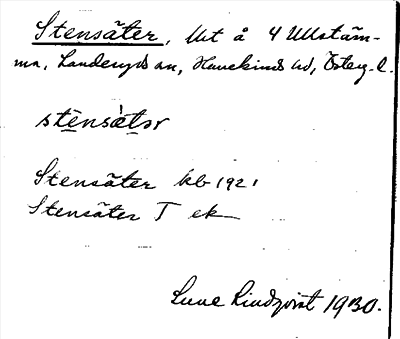 Stensäter, Ut å 4 Ullstäm-
ma, Landeryds sn, Hanekinds hd, Österg. l.
stensätər
Stensäter kb 1921
Stensäter T ek
Sune Lindqvist 1930.